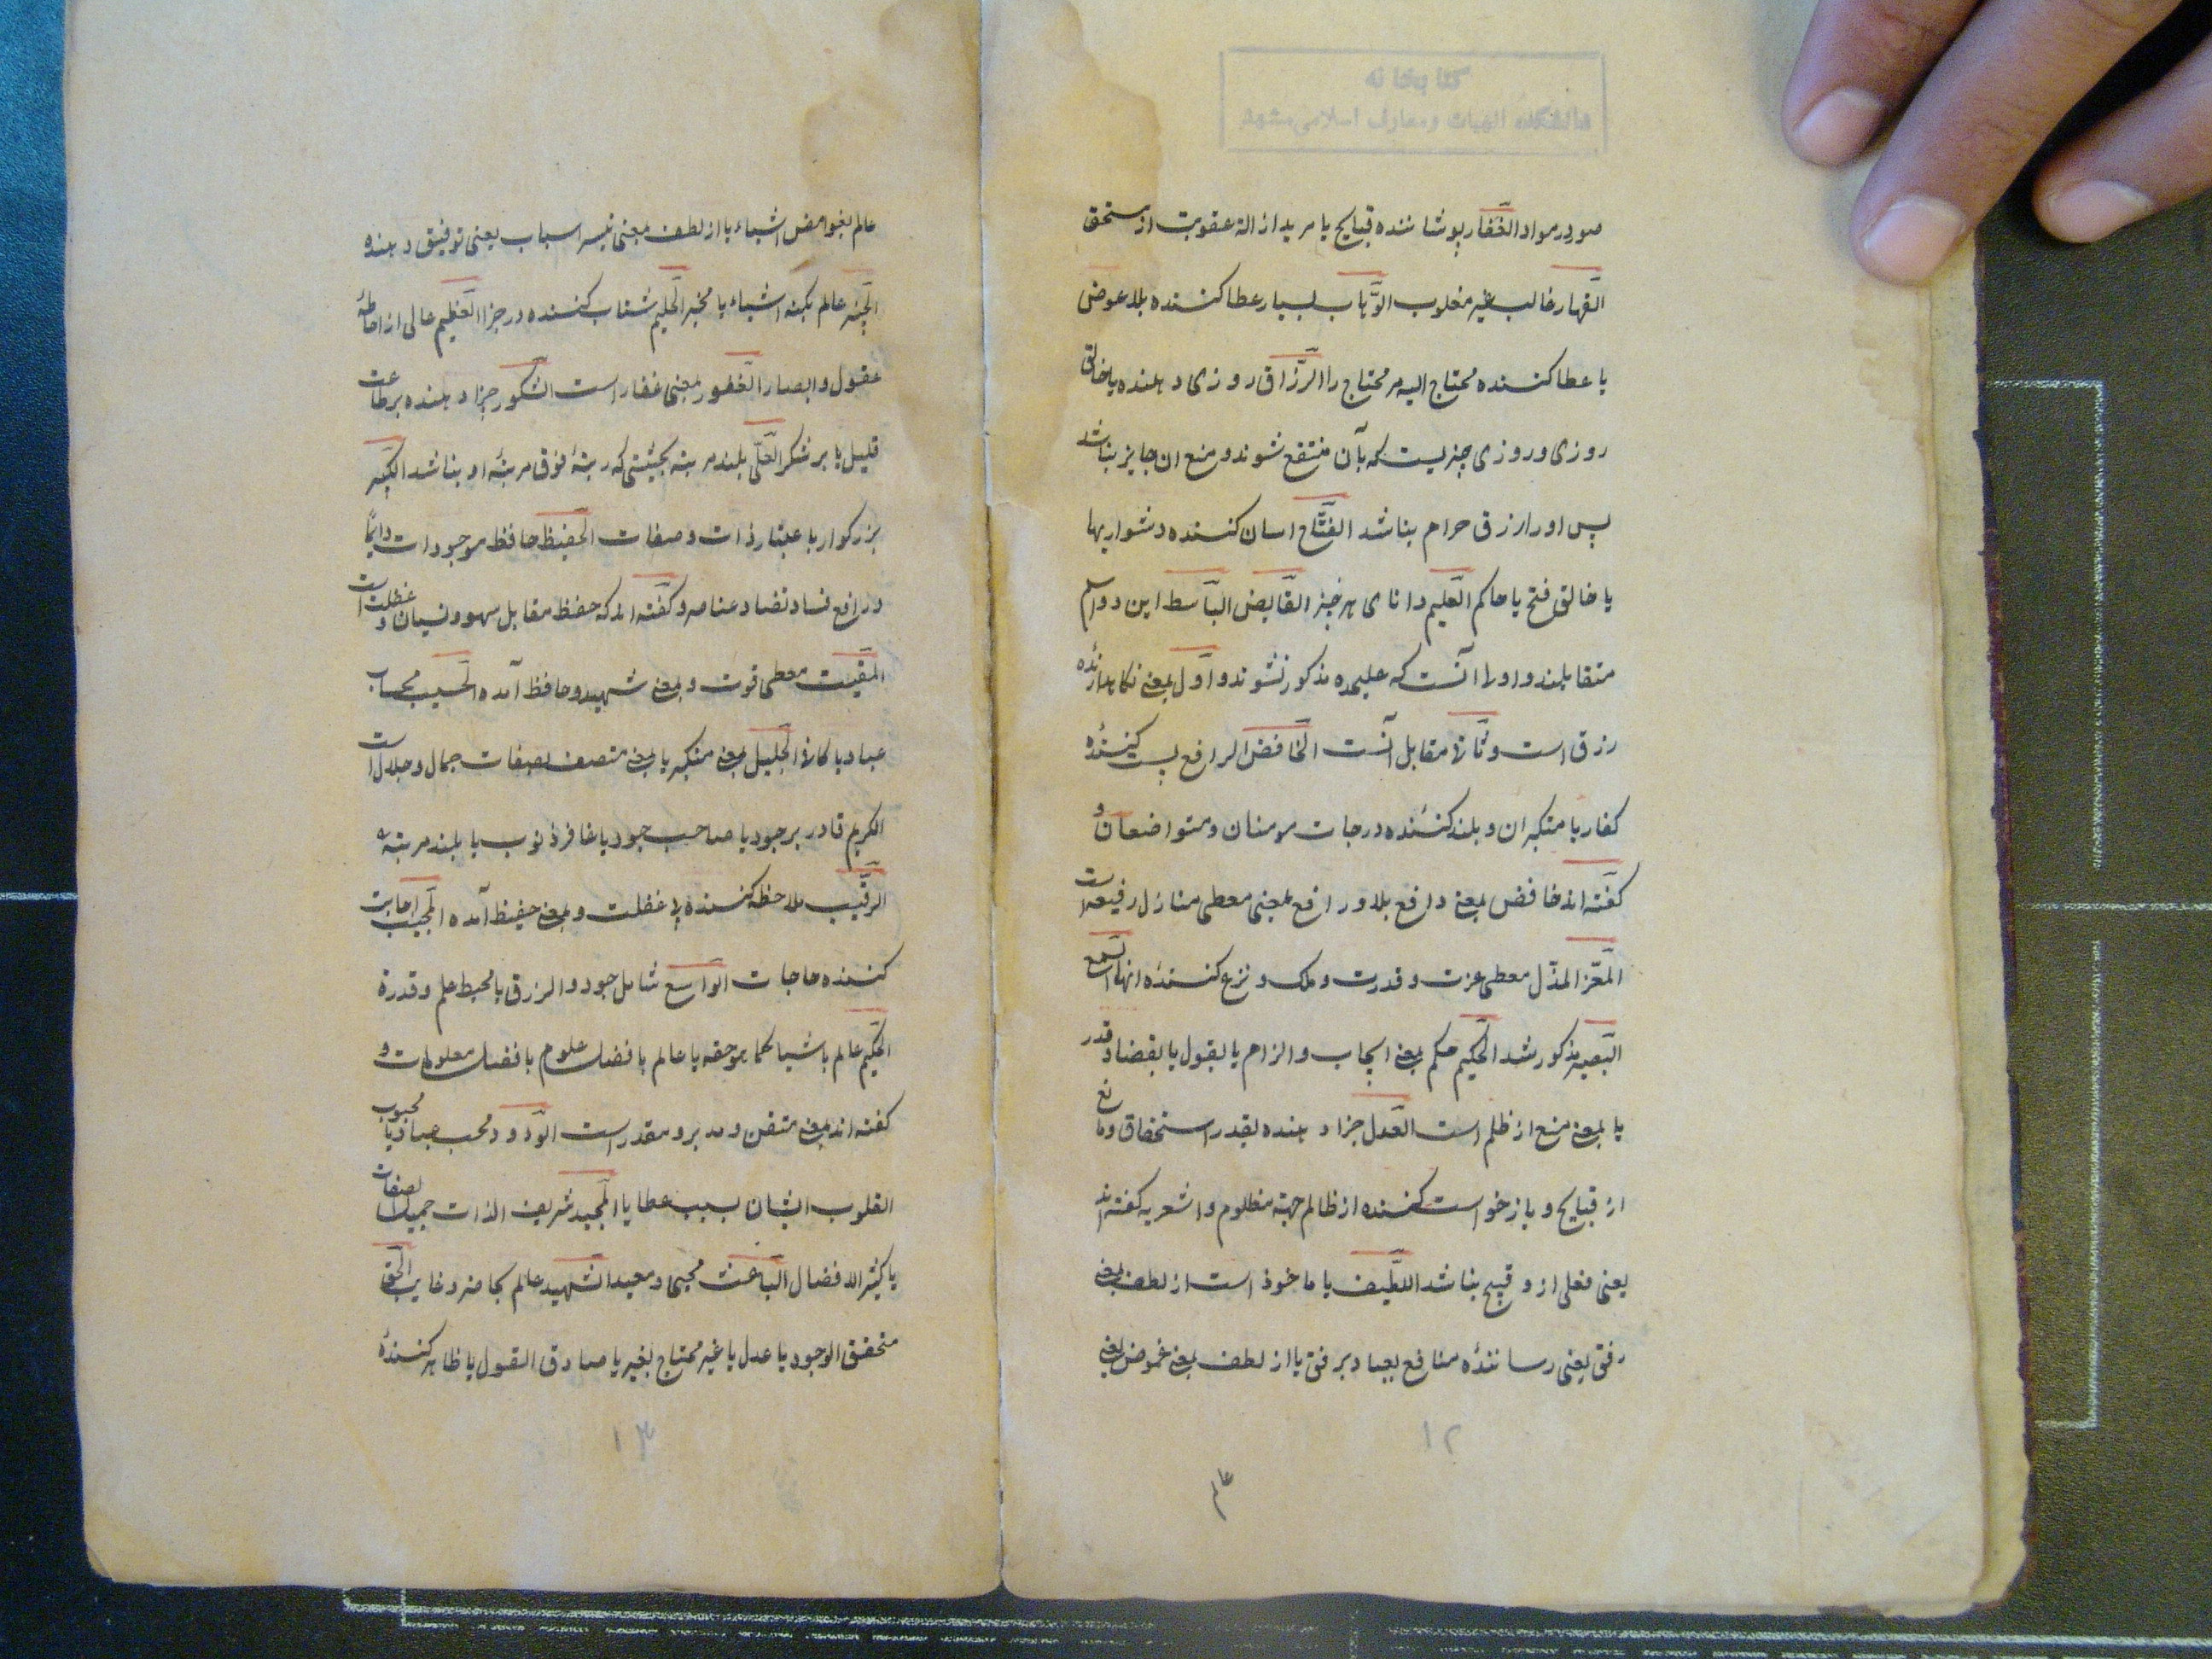 کتابخانه
دانشکده الهیات و معارف اسلامی مشهد
صور در مواد الغفّار پوشاننده قبایح یا مرید ازالهٔ عقوبت از مستحق
القهّار غالب غیر مغلوب الوهّاب بسیار عطا کننده بلا عوض
یا عطا کننده محتاج الیه مر محتاج را الرّزّاق روزی دهنده یا خالق
روزی و روزی چیزیست که بآن منتفع شوند و منع ان جایز نباشد
پس او را رزق حرام نباشد الفتّاح اسان کننده دشواریها
یا خالق فتح یا حاکم العلیم دانای هر چیز القابض الباسط این دو اسم
متقابلند و اولا آنست که علیحده مذکور نشوند و اول بمعنی نکاهدارنده
رزق است و ثانی مقابل آنست الخافض الرافع پست کننده
کفار یا متکبران و بلند کننده درجات مومنان و متواضعان و
کفته اند خافض بمعنی دافع بلا و رافع بمعنی معطی منازل رفیعه است
المعزّ المذلّ معطی عزت و قدرت و ملک و نزع کننده انها السّمیع
البصیر مذکور شد الحکیم حکم بمعنی ایجاب و الزام یا بقول یا بقضا و قدر
یا بمعنی منع از ظلم است العدل جزا دهنده بقدر استحقاق و مانع
از قبایح و بازخواست کننده از ظالم جهته مظلوم و اشعریه کفته اند
یعنی فعلی از و قبیح نباشد اللّطیف یا ماخوذ است از لطف بمعنی
رفق یعنی رساننده منافع بعباد برفق یا از لطف بمعنی غموض یعنی
۱۲
عالم بغوامض اشیاء یا از لطف بمعنی تیسر اسباب یعنی توفیق دهنده
الخبیر عالم بکنه اشیاء یا مخبر الحلیم شتاب کننده در جزا العظیم عالی از احاطهٔ
عقول و ابصار الغفور بمعنی غفار است الشکور جزا دهنده بر طاعت
قلیل یا بر شکر العلیّ بلند مرتبه بحیثیتی که رتبهٔ فوق مرتبهٔ او نباشد الکبیر
بزرکوار باعتبار ذات و صفات الحفیظ حافظ موجودات دایمًا
و رافع فساد تضاد عناصر و کفته اند که حفظ مقابل سهو و نسیان و غفلت است
المقیت معطی قوت و بمعنی شهید و حافظ آمده الحسیب محاسب
عباد یا کافی الجلیل بمعنی متکبر یا بمعنی متصف بصفات جمال و جلال است
الکریم قادر بر جود یا صاحب جود یا غافر ذنوب یا بلند مرتبه
الرقیب ملاحظه کننده بی غفلت و بمعنی حفیظ آمده المجیب اجابت
کننده حاجات الواسع شامل جود و الرزق یا محیط علم و قدرة
الحکیم عالم باشیا کما هو حقه یا عالم بافضل علوم بافضل معلومات و
کفته اند بمعنی متقن و مدبر و مقدر است الودود محب عباد یا محبوب
القلوب ایشان بسبب عطایا المجید شریف الذات جمیل الصفات
یا کثیر الافضال الباعث محیی و معید الشهید عالم بحاضر و غایب الحق
متحقق الوجود یا عدل یا غیر محتاج بغیر یا صادق القول یا ظاهر کننده
۱۳